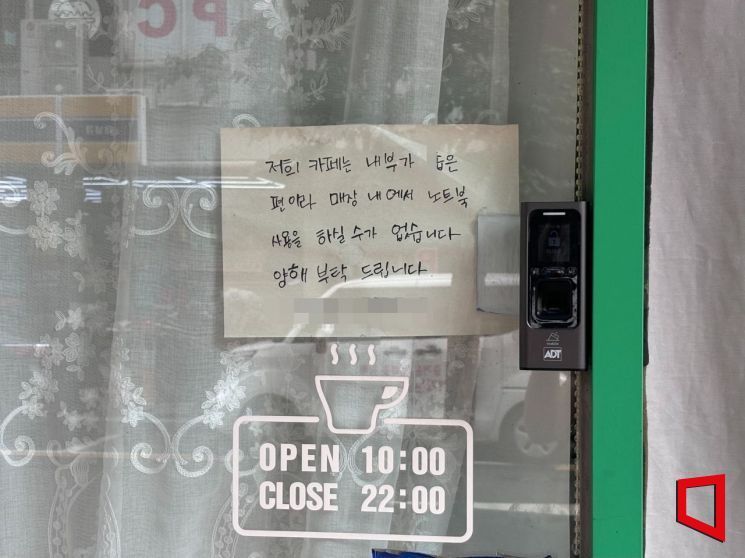 저희 카페는 내부가 좁은
편이라 매장 내에서 노트북
사용을 하실 수가 없습니다
양해 부탁 드립니다.
ADT
OPEN 10:00
CLOSE 22:00